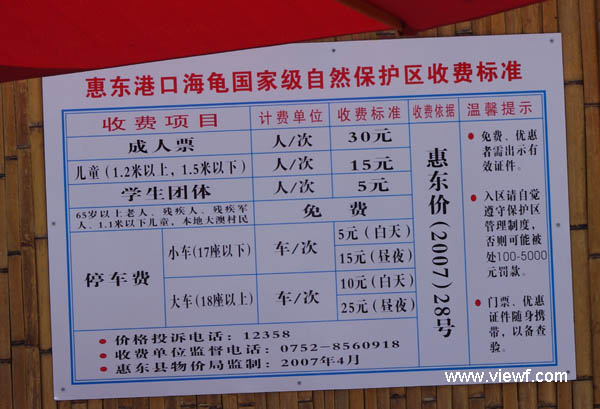 惠东港口海龟国家级自然保护区收费标准
收费项目 计费单位 收费标准 收费依据 温馨提示
成人票 人/次 30元
儿童（1.2米以上，1.5米以下） 人/次 15元
学生团体 人/次 5元
65岁以上老人、残疾人、残疾军
人、1.1米以下儿童，本地大澳村民
免 费
停车费
小车(17座以下) 车/次 5元（白天）
15元（昼夜）
大车(18座以上) 车/次 10元（白天）
25元（昼夜）
惠东价(2007)28号
● 免费、优惠
者需出示有
效证件。
● 入区请自觉
遵守保护区
管理制度，
否则可能被
处100-5000
元罚款。
● 门票、优惠
证件随身携
带，以备查
验。
● 价格投诉电话：12358
● 收费单位监督电话：0752-8560918
● 惠东县物价局监制：2007年4月
www.viewf.com